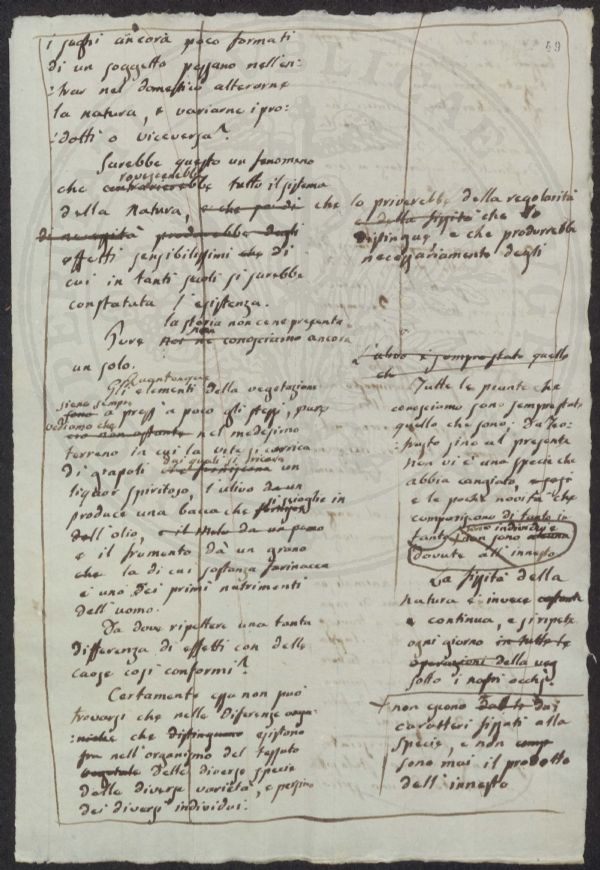 59
i sughi ancora poco formati
di un soggetto possano nell'en:
:trar nel domestico alterarne
la natura, e variarne i pro:
:dotti o viceversa?
Sarebbe questo un fenomeno
rovescerebbe
che contrarierebbe tutto il sistema
della Natura, e che perdi che lo priverebbe della regolarità
e della fissità che lo
di necessità produrrebbe degli
distingue, e che produrrebbe
effetti sensibilissimi che di
necessariamente degli
cui in tanti secoli si sarebbe
constatata l'esistenza.
la storia non ce ne presenta
Pure noi non ne conosciamo ancora
un solo.
Quantunque
Gli elementi della vegetazione
sieno sempre
sono a press'a poco gli stessi, pure
vediamo che
ero non ostante nel medesimo
terreno in cui la vite si carica
dai quali si ricava
di grapoli che forniscono un
liquor spiritoso, l'ulivo da un
si scioglie in
produce una bacca che
dell'olio, e il melo da un pomo
e il frumento dà un grano
che la di cui sostanza farinacea
è uno dei primi nutrimenti
dell'uomo.
Da dove ripettere una tanta
differenza di effetti con delle
cause così conformi?
Certamente essa non può
trovarsi che nelle differenze orga:
:niche che distinguono esistono
fra nell'organismo del tessuto
vegetale delle diverse specie
delle diverse varietà, e persino
dei diversi individui.
L'ulivo è sempre stato quello
che
Tutte le piante che
conosciamo sono sempre state
quello che sono; Da Teo:
:frasto sino al presente
non vi è una specie che
abbia cangiato,
e le poche novità che
compariscono di tanto in
sono individui e
tanto non sono
dovute all'innesto
La fissità della
natura è invece costante
e continua, e si ripete
ogni giorno in tutte le
operazioni della veg
sotto i nostri occhj.
+ non erono dati dai
caratteri fissati alla
specie, e non comp
sono mai il prodotto
dell'innesto